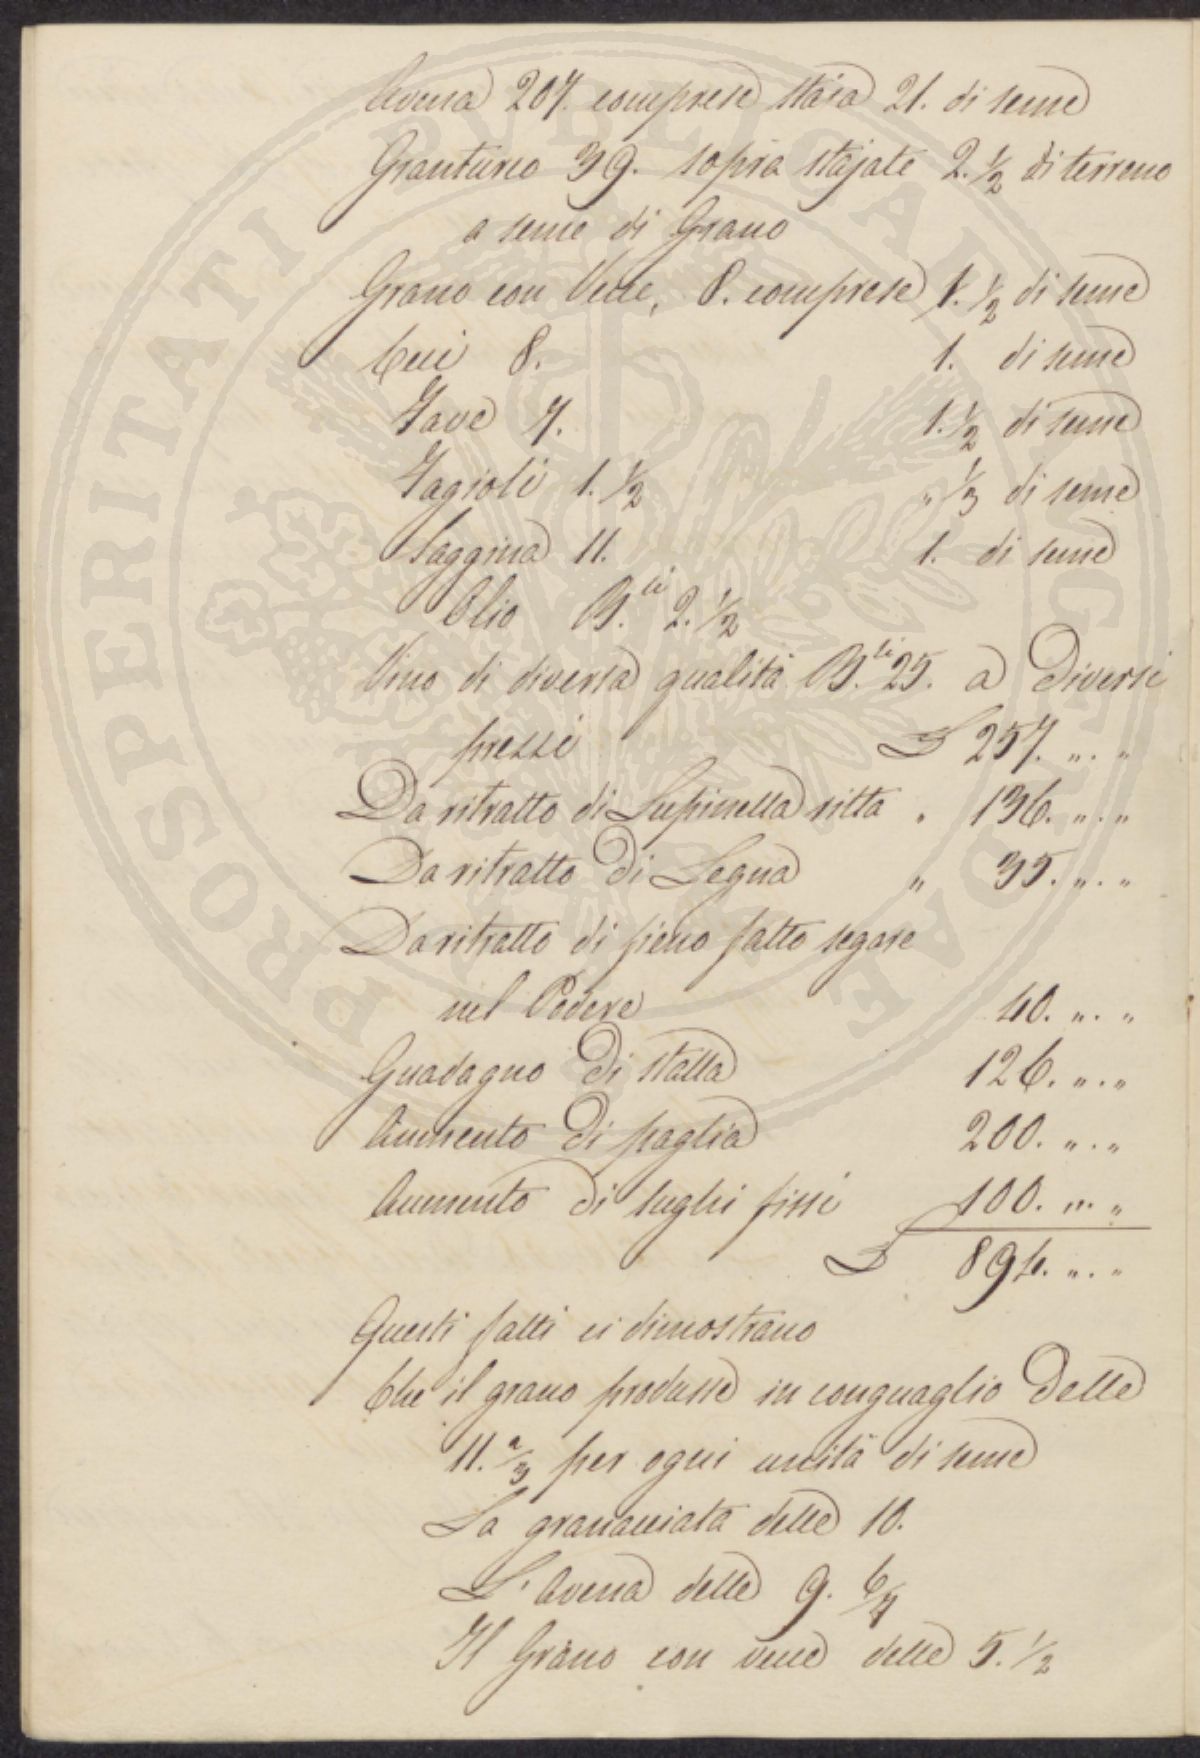 Avena 207. comprese staia 21. di seme
Granturco 39. sopra stajate 2. 1/2 di terreno
a seme di Grano
Grano con Vecce, 8. comprese 1. 1/2 di seme
Ceci 8. 1. di seme
Fave 7. 1. 1/2 di seme
Fagioli 1. 1/2 „ 1/3 di seme
Saggina 11. 1. di seme
Olio B.li 2. 1/2
Vino di diversa qualità B.li 25. a diversi
prezzi £ 257. „. „
Da ritratto di Lupinella ritta „ 136. „. „
Da ritratto di Legna „ 35. „. „
Da ritratto di fieno fatto segare
nel Podere 40. „. „
Guadagno di stalla 126. „. „
Aumento di paglia 200. „. „
Aumento di sughi fissi 100. „. „
£ 894. „. „
Questi fatti ci dimostrano
Che il grano produsse in conguaglio delle
11. 2/3 per ogni unità di seme
La granacciata delle 10.
L'Avena delle 9. 6/7
Il Grano con vecce delle 5. 1/2
PROSPERITATI PUBLICAE AUGENDAE